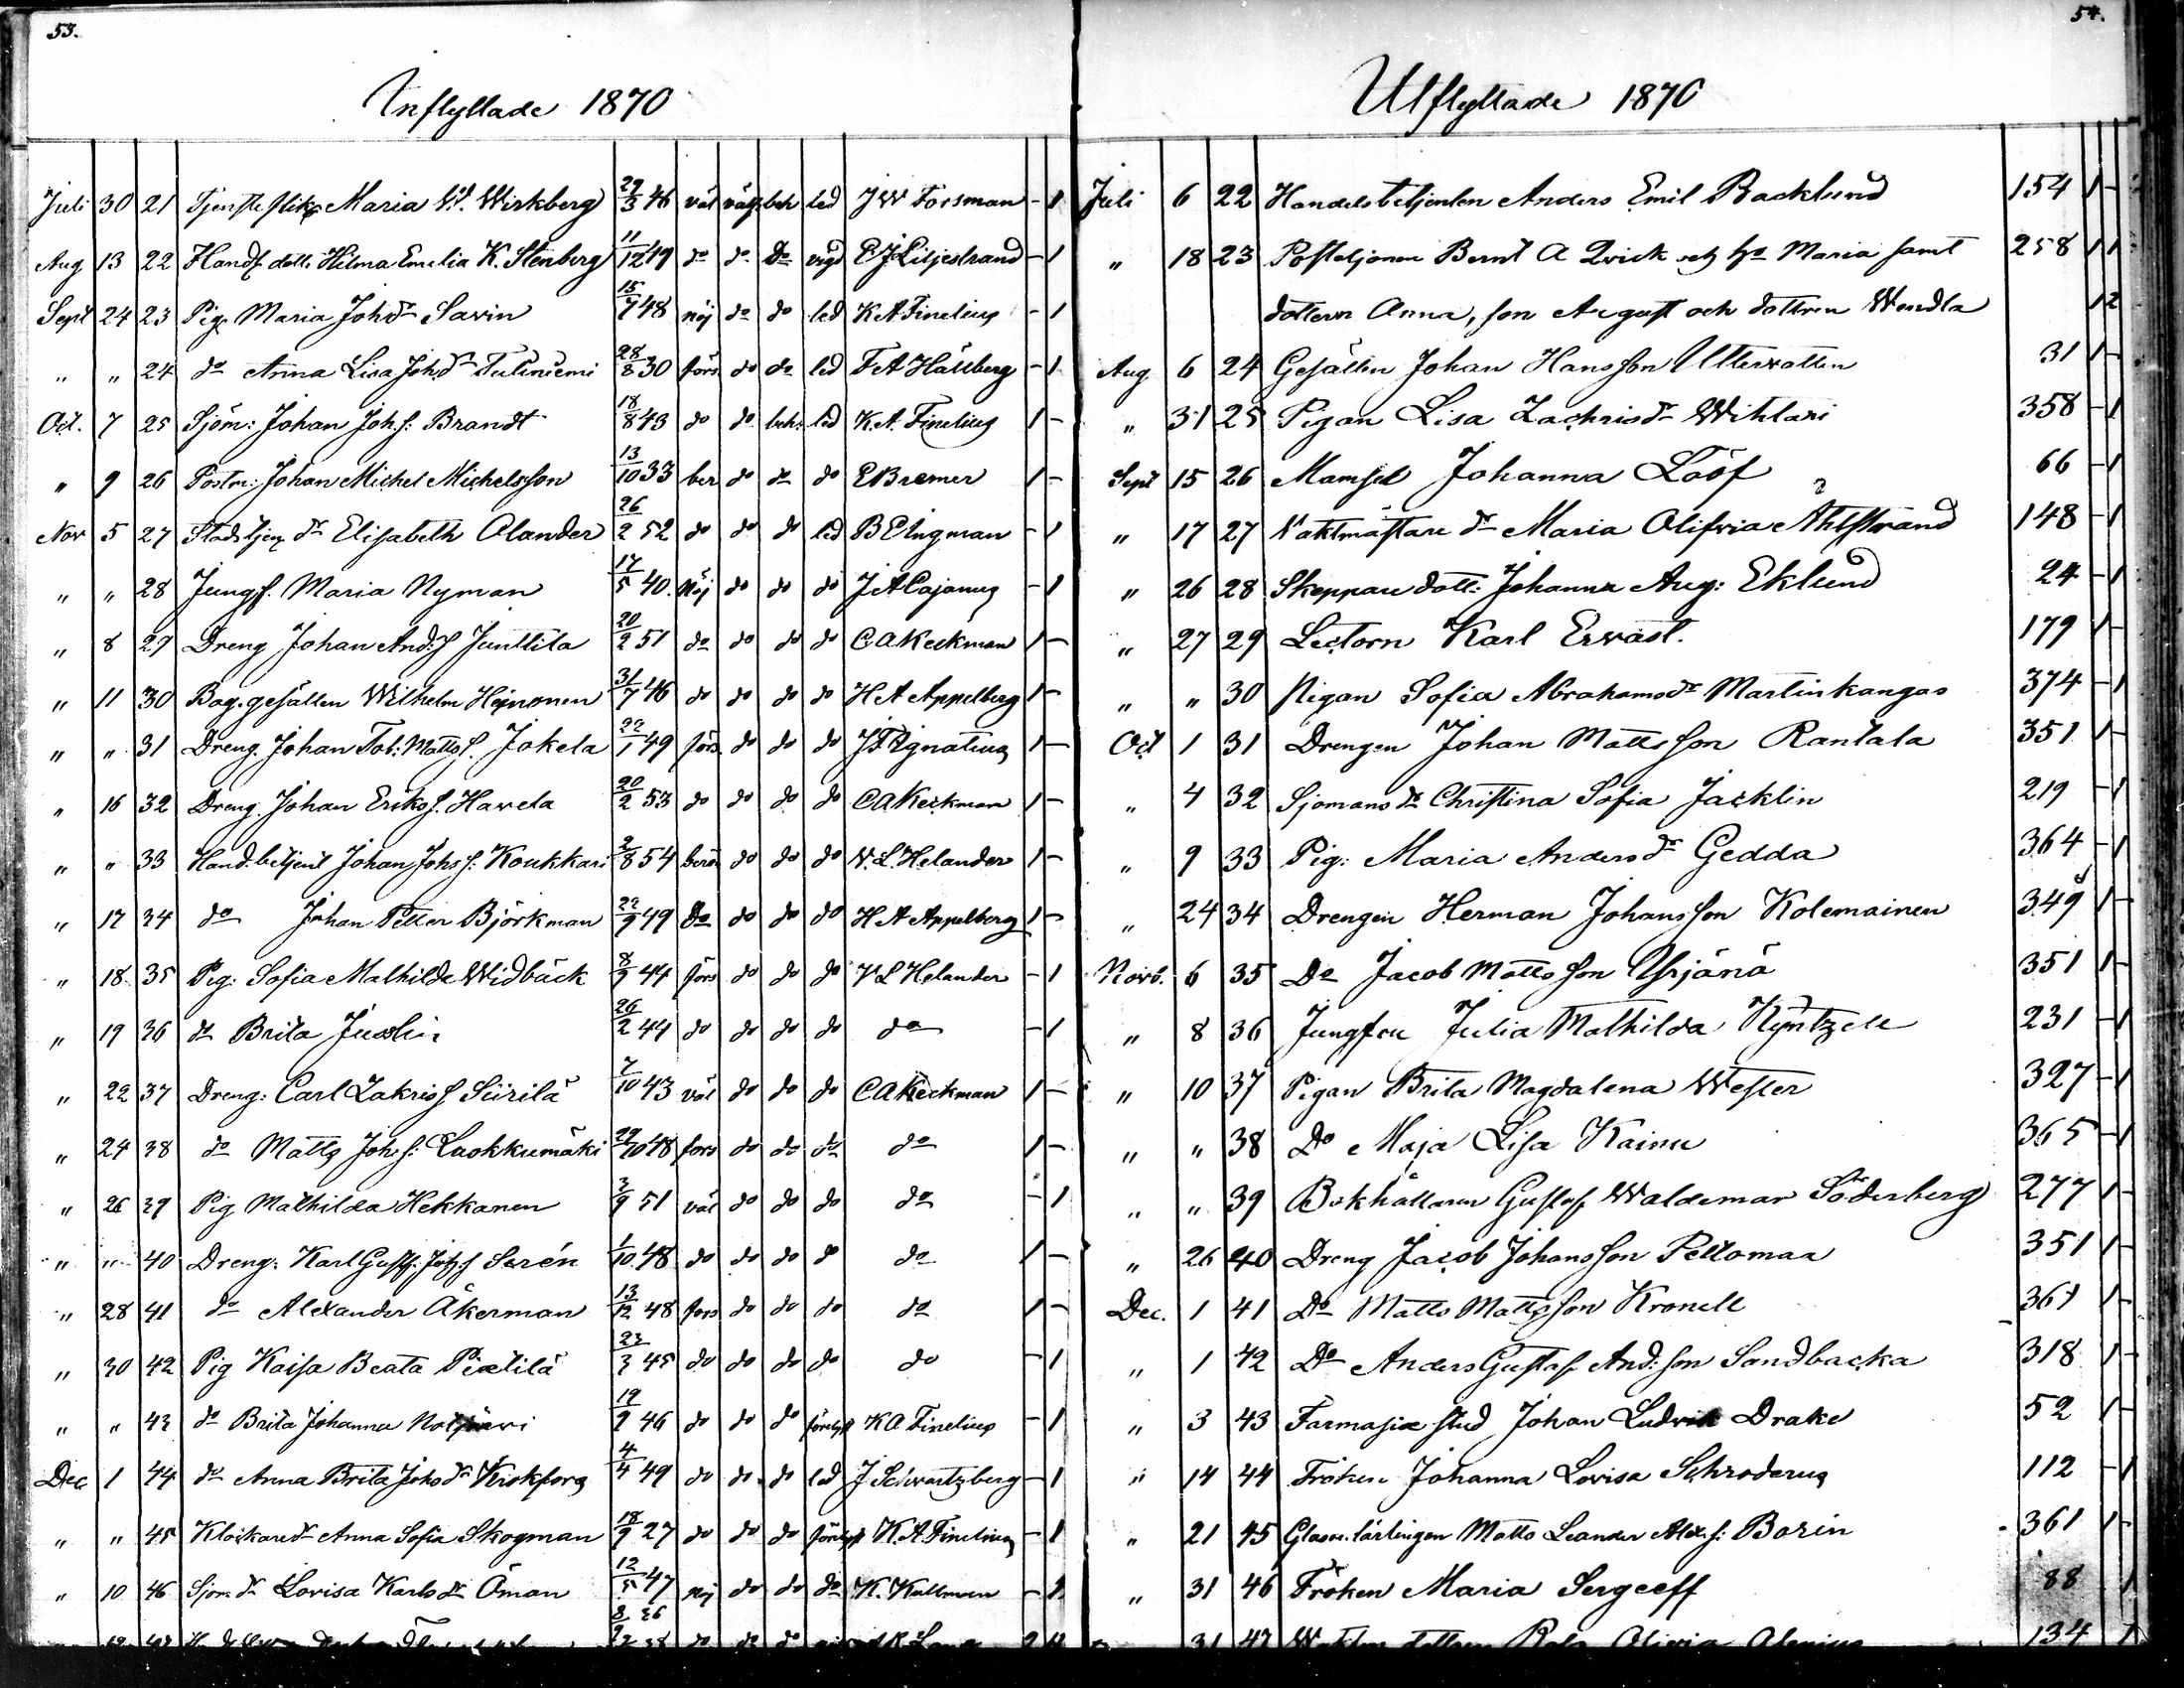 53.
Inflyttade 1870
Juli 30 21 Tjensteflik Maria Wirkberg 29/3 46 väl beh led J W Forsman - 1
Aug 13 22 Handl. dott: Hilma Emelia K. Stenberg 11/12 49 do do Do vigd C J Liljestrand - 1
Sept 24 23 Pig. Maria Johdr Savin 15/9 48 nöj do do led K A Finelius - 1
" " 24 do Anna Lisa Johdr Tuliniemi 28/8 30 förs do do led F A Hällberg - 1
Oct. 7 25 Sjöm: Johan Johs: Brandt 18/8 43 do do beh: led K. A. Finelius 1 -
" 9 26 Postm: Johan Michel Michelsson 13/10 33 ber do do do E Bremer 1 -
Nov 5 27 Stadstjen dr Elisabeth Olander 26/2 52 do do do led B E Ingman - 1
" " 28 Jungf. Maria Nyman 17/5 40. Nöj do do do J A Cajanus - 1
" 8 29 Dreng Johan And:s Junttila 20/2 51 do do do do C A Keckman 1 -
" 11 30 Bag. gesällen Wilhelm Heinonen 31/7 46 do do do do H A Appelberg 1 -
" " 31 Dreng. Johan Tob: Matts s. Jokela 22/1 49 förs do do do J F Ignatius 1 -
" 16 32 Dreng. Johan Eriks s. Havela 20/2 53 do do do do C A Keckman 1 -
" " 33 Hand. betjent Johan Johs s: Koukkari 2/8 54 do do do V. L. Helander 1 -
" 17 34 do Johan Petter Björkman 22/9 49 Do do do do H A Appelberg 1 -
" 18 35 Pig: Sofia Mathilda Widbäck 8/9 44 förs do do do V L Helander - 1
" 19 36 do Brita Juslin 26/2 44 do do do do do - 1
" 22 37 Dreng: Carl Zakris s Siirilä 7/10 43 väl do do do C A Keckman 1 -
" 24 38 do Matts Joh s: Laokkumäki 29/10 48 fors do do do do 1 -
" 26 39 Pig Mathilda Hekkanen 3/9 51 väl do do do do - 1
" " 40 Dreng: Karl Gust. Johs s Serén 1/10 48 do do do do do 1 -
" 28 41 do Alexander Åkerman 13/12 48 fors do do do do 1 -
" 30 42 Pig Kaisa Beata Pietilä 23/3 45 do do do do do - 1
" " 43 do Brita Johanna 19/9 46 do do do K A Finelius - 1
Dec 1 44 do Anna Brita Johs dr Krokfors 4/4 49 do do do led J Schwartzberg - 1
" " 45 Klockare dr Anna Sofia Skogman 18/9 27 do do do K. A. Finelius - 1
" 10 46 Sjm. dr Lovisa Karls dr Öman 12/5 47 nöj do do do K. Kallman - 1
54.
Utflyttade 1870
Juli 6 22 Handelsbetjenten Anders Emil Backlund 154 1 -
" 18 23 Postiljonen Bernt A Qvick och ho Maria samt 258 1 1
dottern Anna, son August och dottren Wendla 1 2
Aug 6 24 Gesällen Johan Hansson Uttervatten 31 1 -
" 31 25 Pigan Lisa Zachrisdr Wihlari 358 - 1
Sept 15 26 Mamsel Johanna Lööf 66 - 1
" 17 27 Vaktmästare dr Maria Olifvia Ahlstrand 148 - 1
" 26 28 Skeppare dott: Johanna Aug: Eklund 24 - 1
" 27 29 Lectorn Karl Ervast. 179 1 -
" " 30 Pigan Sofia Abrahamsdr Martinkangas 374 - 1
Oct 1 31 Drengen Johan Mattsson Rantala 351 1 -
" 4 32 Sjomans dr Christina Sofia Jacklin 219 - 1
" 9 33 Pig: Maria Anders dr Gedda 364 - 1
" 24 34 Drengen Herman Johansson Kolemainen 349 1 -
Novb. 6 35 Do Jacob Mattsson Yrjänä 351 1 -
" 8 36 Jungfru Julia Mathilda Kyntzell 231 - 1
" 10 37 Pigan Brita Magdalena Wester 327 - 1
" " 38 Do Maja Lisa Kainu 365 - 1
" " 39 Bokhållaren Gustaf Waldemar Söderberg 277 1 -
" 26 40 Dreng Jacob Johansson Peltomaa 351 1 -
Dec. 1 41 Do Matts Mattsson Kronell 361 1 -
" 1 42 Do Anders Gustaf And: son Sandbacka 318 1 -
" 3 43 Farmasie stud Johan Ludvik Drake 52 1 -
" 14 44 Fröken Johanna Lovisa Schroderus 112 - 1
" 21 45 Glasm. lärlingen Matts Leander Alex. s: Borin 361 1 -
" 31 46 Fröken Maria Sergeeff 88 - 1
31 47 dottren Olivia Alenius 134 1